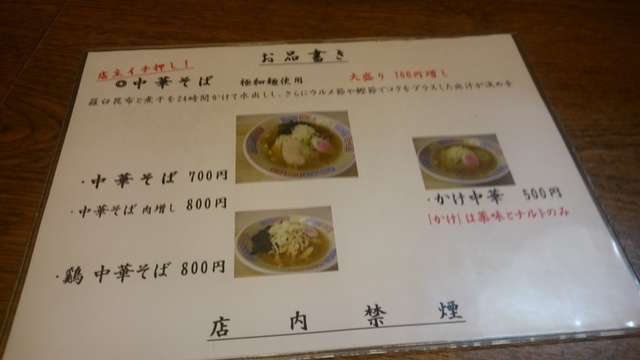 お品書き
店主イチ押し!
◎中華そば 極細麺使用 大盛り 100円増し
羅臼昆布と煮干を24時間かけて水出しし、さらにウルメ節や鰹節でコクをプラスした出汁が決め手
・中華そば 700円
・中華そば 肉増し 800円
・かけ中華 500円
「かけ」は薬味とナルトのみ
・鶏 中華そば 800円
店内禁煙